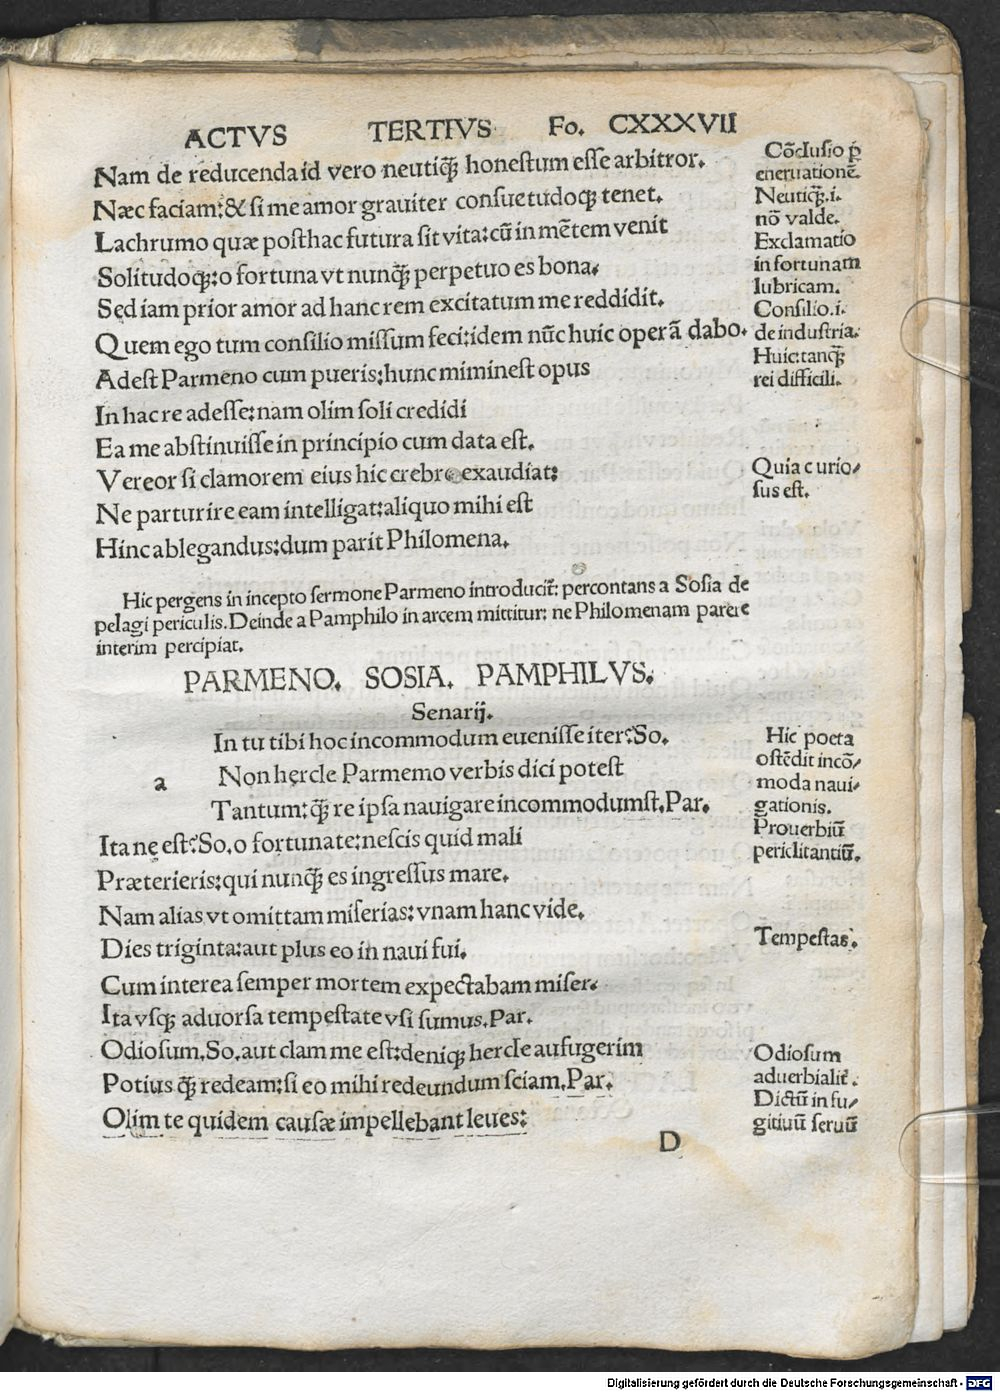 ACTVS TERTIVS Fo. CXXXVII
Nam de reducenda id vero neutiqꝫ honestum esse arbitror.
Næc faciam:& si me amor grauiter consuetudoqꝫ tenet.
Lachrumo quæ posthac futura sit vita:cū in mētem venit
Solitudoqꝫ:o fortuna vt nunqꝫ perpetuo es bona.
Sed iam prior amor ad hanc rem excitatum me reddidit.
Quem ego tum consilio missum feci:idem nūc huic operā dabo.
Adest Parmeno cum pueris:hunc miminest opus
In hac re adesse:nam olim soli credidi
Ea me abstinuisse in principio cum data est.
Vereor si clamorem eius hic crebro exaudiat:
Ne parturire eam intelligat:aliquo mihi est
Hinc ablegandus:dum parit Philomena.
Cōclusio ꝑ
eneruationē.
Neutiqꝫ.i.
nō valde.
Exclamatio
in fortunam
lubricam.
Consilio.i.
de industria.
Huic:tanqꝫ
rei difficili.
Quia curio/
sus est.
Hic pergens in incepto sermone Parmeno introducit̄: percontans a Sosia de
pelagi periculis. Deinde a Pamphilo in arcem mittitur: ne Philomenam parere
interim percipiat.
PARMENO. SOSIA. PAMPHILVS.
Senarij.
a
In tu tibi hoc incommodum euenisse iter?So.
Non hercle Parmemo verbis dici potest
Tantum:qꝫ re ipsa nauigare incommodumst.Par.
Ita ne est?So.o fortunate:nescis quid mali
Præterieris:qui nunqꝫ es ingressus mare.
Nam alias vt omittam miserias:vnam hanc vide.
Dies triginta:aut plus eo in naui fui.
Cum interea semper mortem expectabam miser.
Ita vsqꝫ aduorsa tempestate vsi sumus.Par.
Odiosum.So.aut clam me est:deniqꝫ hercle aufugerim
Potius qꝫ redeam:si eo mihi redeundum sciam.Par.
Olim te quidem causæ impellebant leues:
Hic poeta
ostēdit incō/
moda naui/
gationis.
Prouerbiū
periclitantiū.
Tempestas.
Odiosum
aduerbialit̄.
Dictū in fu/
gitiuū seruū
D
Digitalisierung gefördert durch die Deutsche Forschungsgemeinschaft - DFG